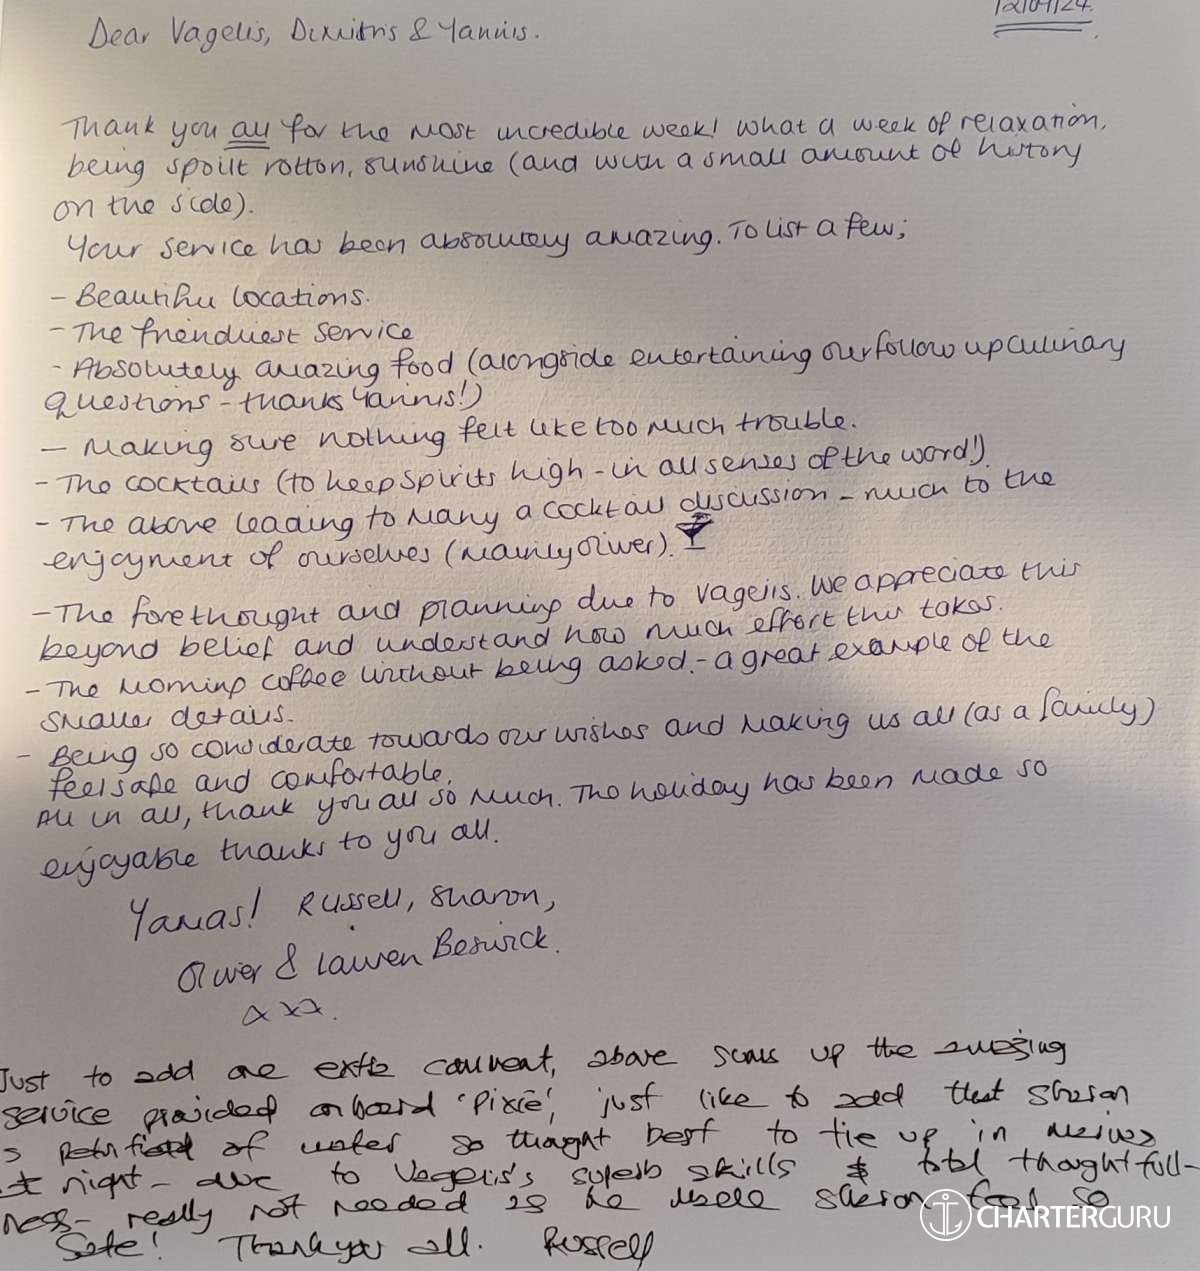 12/09/24.
Dear Vagelis, Dimitris & Yannis.
Thank you all for the most incredible week! What a week of relaxation,
being spoilt rotton, sunshine (and with a small amount of history
on the side).
Your service has been absolutely amazing. To list a few;
- Beautiful locations.
- The friendliest service
- Absolutely amazing food (alongside entertaining our follow up culinary
questions - thanks Yannis!)
- Making sure nothing felt like too much trouble.
- The cocktails (to keep spirits high - in all senses of the word!)
- The above leading to many a cocktail discussion - much to the
enjoyment of ourselves (mainly Oliver).
- The forethought and planning due to Vagelis. We appreciate this
beyond belief and understand how much effort this takes.
- The morning coffee without being asked. - a great example of the
smaller details.
- Being so considerate towards our wishes and making us all (as a family)
feel safe and comfortable.
All in all, thank you all so much. The holiday has been made so
enjoyable thanks to you all.
Yamas! Russell, Sharon,
Oliver & Lauren Beswick.
xxx.
Just to add one extra comment, above sums up the amazing
service provided onboard 'Pixie', just like to add that Sharon
is petrified of water so thought best to tie up in
at night - due to Vagelis's superb skills & total thoughtfull-
ness - really not needed as he made Sharon feel so
Safe! Thankyou all. Russell
CHARTERGURU